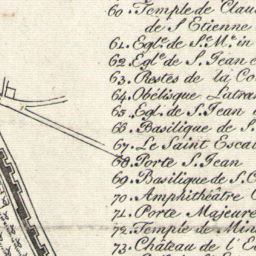 60. Temple de Clau
de S. Etienne
61. Egl.e de S. M.e in
62. Egl.e de S. Jean e
63. Restes de la Co
64. Obélisque Latran
65. Egl. de S. Jean
66. Basilique de S.
67. Le Saint Escal
68. Porte S. Jean
69. Basilique de S. C
70. Amphithéâtre
71. Porte Majeure
72. Temple de Min
73. Château de l'E